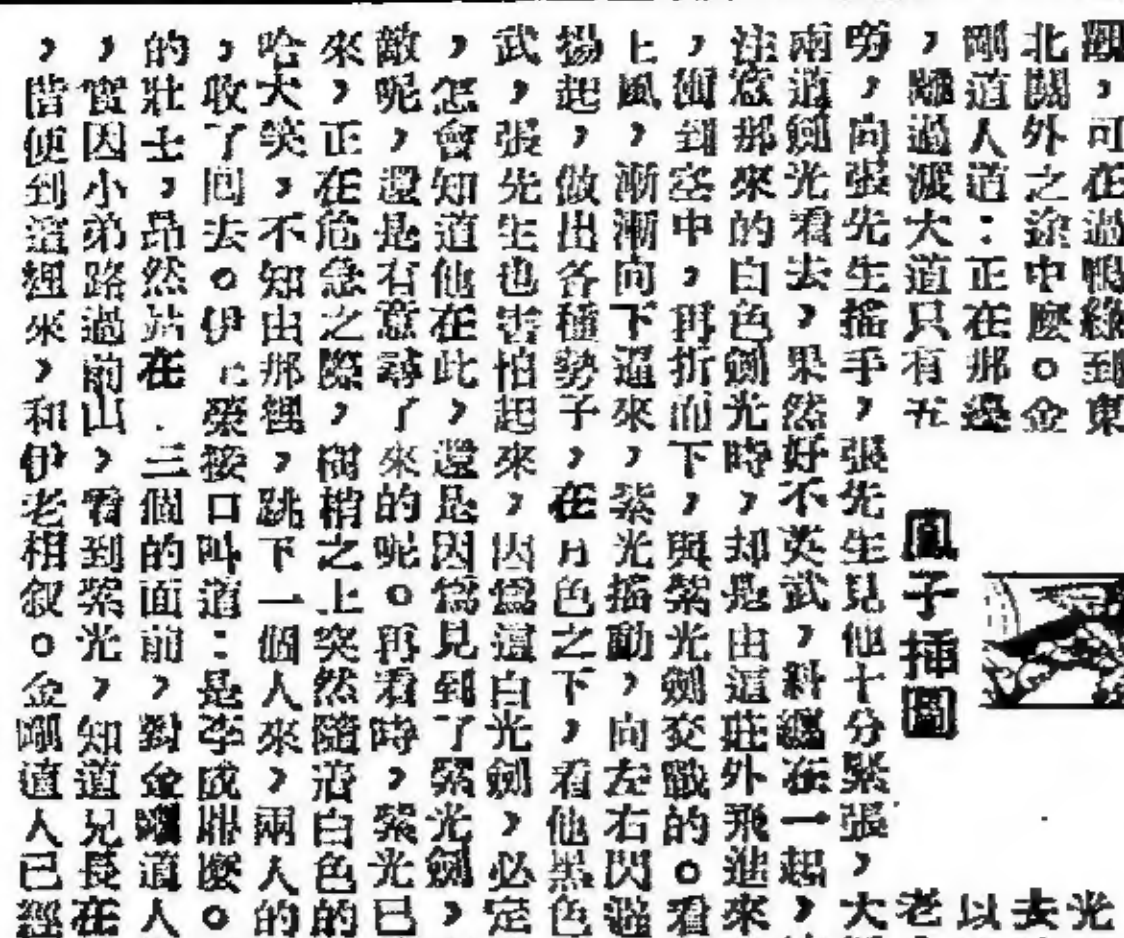 飄，可在過鴨綠到東
北關外之途中麼。金
剛道人道：正在那邊
，離過渡大道只有五
旁，向張先生搖手，張先生見他十分緊張，大
兩道劍光看去，果然好不英武，料纏在一起，
注意那來的白色劍光時，却是由這莊外飛進來
，衝到空中，再折而下，與紫光劍交戰的。看
上風，漸漸向下逼來，紫光搖動，向左右閃避
揚起，做出各種勢子，在月色之下，看他黑色
武，張先生也害怕起來，因為這白光劍，必定
，怎會知道他在此，還是因為見到了緊光劍，
敵呢，還是有意尋了來的呢。再看時，紫光已
來，正在危急之際，樹梢之上突然隨着白色的
哈大笑，不知由那裡，跳下一個人來，兩人的
，收了回去。伊 榮接口叫道：是李成 麼。
的壯士，昂然站在 三個的面前，對金剛道人
，實因小弟路過前山，看到紫光，知道兄長在
，皆便到這裡來，和伊老相叙。金剛道人已經
鳳子插圖
光
去
以
老